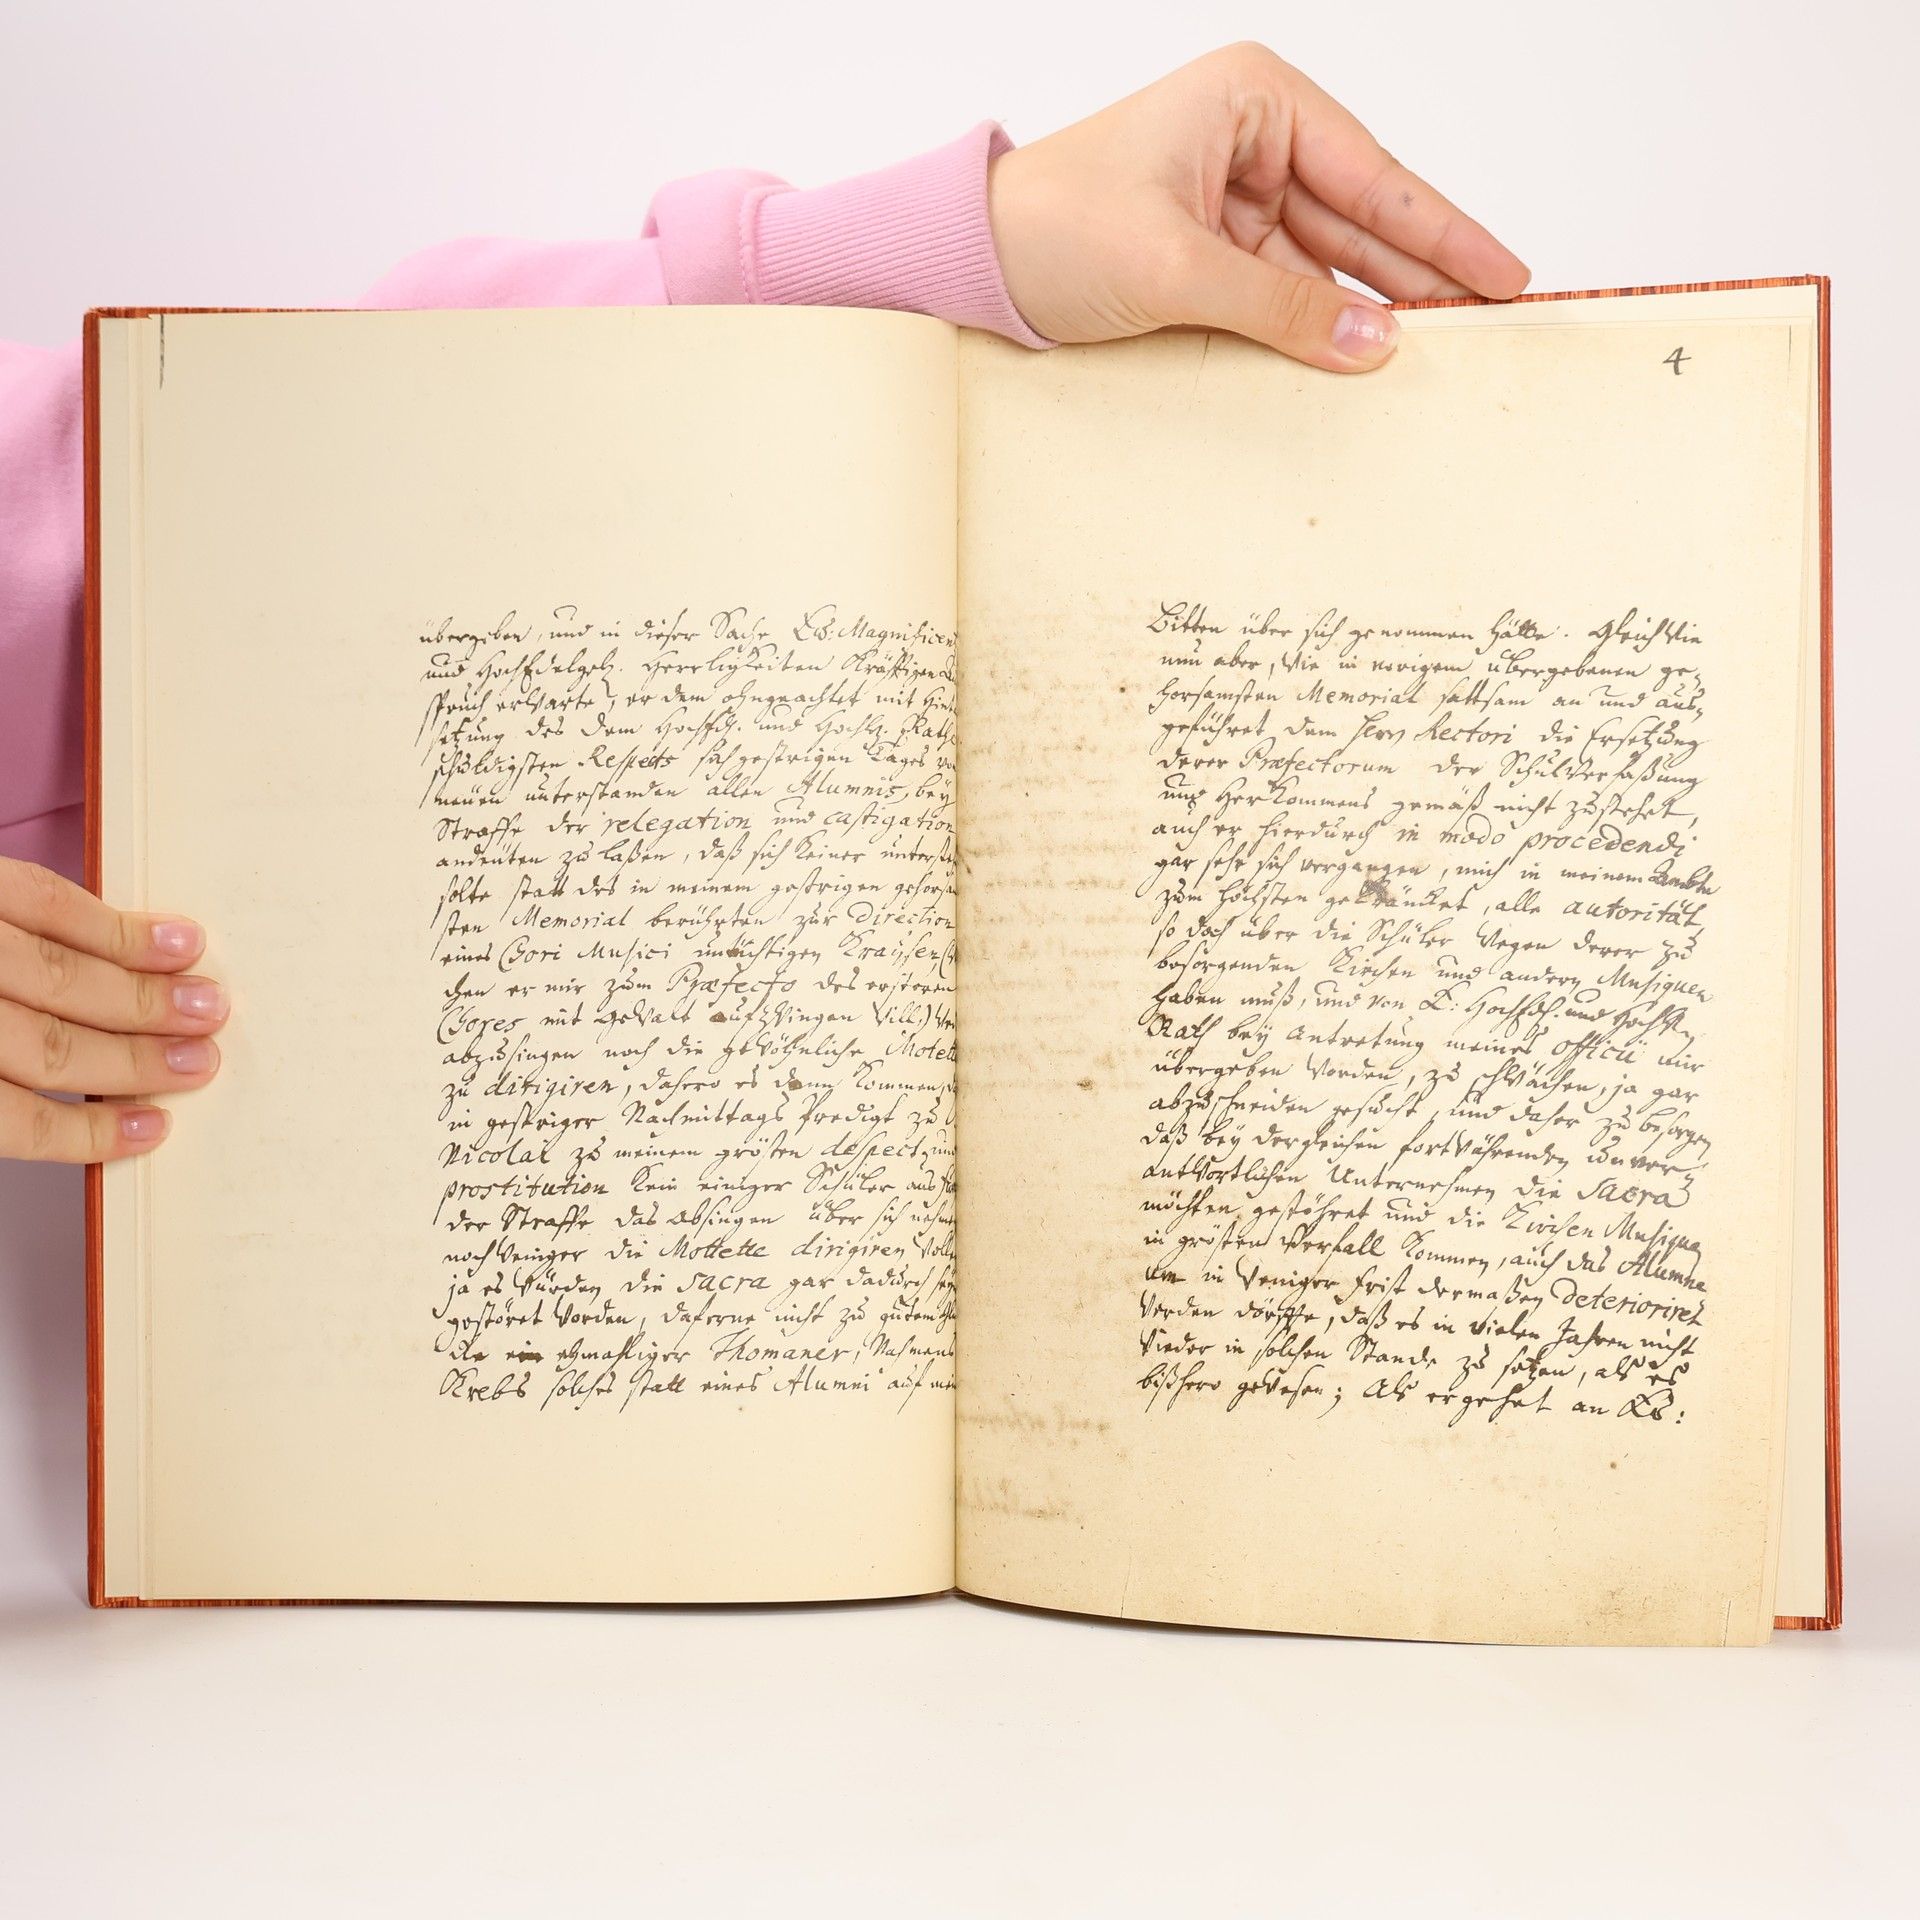 übergeben, und in dieser Sache Ew: Magnificen
und HochEdelgeb. Herrligkeiten Kräfftigen
spruch erwarte, er dem ohngeachtet mit Hint
setzung des dem HochEdl. und Hochw. Rathe
schuldigsten Respects sich gestrigen Tages vo
neuen unterstanden allen Alumnis, bey
Straffe der relegation und castigation
andeüten zu laßen, daß sich Keiner unterste
solte statt des in meinem gestrigen gehorsa
sten Memorial berührten zur Direction
eines Chori Musici untüchtigen Krausen, (w
chen er mir zum Præfecto des ersteren
Chores mit Gewalt aufzwingen will.)
abzusingen noch die gewöhnliche Motett
zu dirigiren, dahero es denn Kommen, d
in gestriger Nachmittags Predigt zu
Nicolai zu meinem grösten despect, und
prostitution Kein einiger Schüler aus
der Straffe das Absingen über sich nehm
noch weniger die Mottette dirigiren Woll
ja es würden die Sacra gar dadurch sey
gestöret worden, daferne nicht zu gutem
ehmahliger Thomaner, Nahmens
Krebs solches statt eines Alumni auf mein
4
Bitten über sich genommen hätte. Gleich Wie
nun aber, wie in vorigem übergebenen ge-
horsamsten Memorial sattsam an und aus-
geführet dem Herrn Rectori die Ersetzung
derer Præfectorum der Schul Verfaßung
und HerKommens gemäß nicht zustehet,
auch er hierdurch in modo procedendi
gar sehr sich vergangen, mich in meinem Ambte
zum höchsten gekräncket, alle autorität,
so doch über die Schüler wegen derer zu
besorgenden Kirchen und andern Musiquen
haben muß, und von E: HochEdl. und Hochw.
Rath bey Antretung meines Officii mir
übergeben worden, zu schwächen, ja gar
abzuschneiden gesucht, und daher zu besorgen
daß bey dergleichen fortwährenden unver-
antwortlichen Unternehmen die Sacra
möchten gestöhret und die Kirchen Musiquen
in grösten Verfall Kommen, auch das Alumne
um in weniger Frist dermaßen deterioriret
werden dörffte, daß es in vielen Jahren nicht
wieder in solchen Stande zu setzen, als es
bißhero gewesen; Als ergehet an Ew: